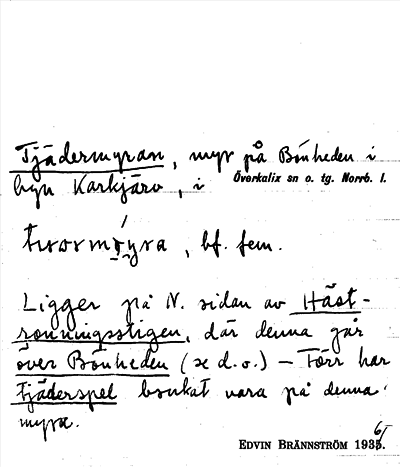 Tjädermyran, myr på Bönheden i
byn Karkjärv, i Överkalix sn o. tg. Norrb. l.
, bf. fem.
Ligger på N. sidan av Häst-
rönningsstigen, där denna går
över Bönheden (se d.o.) – Förr har
tjäderspel brukat vara på denna
myr.
EDVIN BRÄNNSTRÖM 1936.